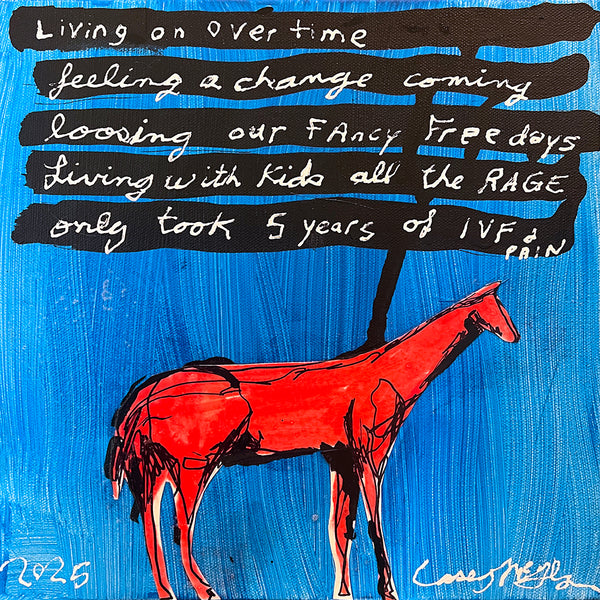 Living on over time
feeling a change coming
loosing our FAncy Free days
Living with Kids all the RAGE
only took 5 years of IVF &
PAIN
2025